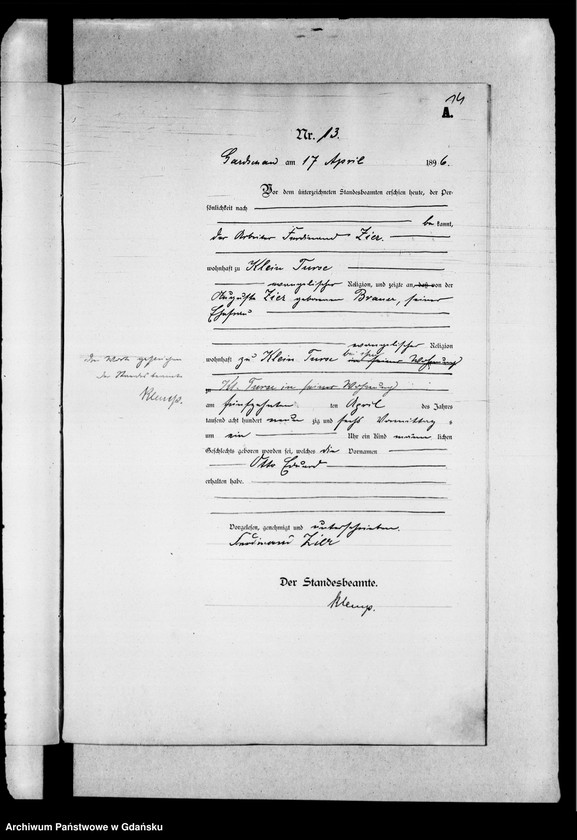 14
A.
Nr. 13.
am 17 April 1896.
Vor dem unterzeichneten Standesbeamten erschien heute, der Per-
sönlichkeit nach
be kannt,
der Arbeiter Ferdinand Zier.
wohnhaft zu Klein Turse
evangelischer Religion, und zeigte an, daß von der
Auguste Zier geborenen Brauer, seiner
Ehefrau
evangelischer Religion
wohnhaft zu Klein Turse bei ihm in seiner Wohnung
zu Kl. Turse in seiner Wohnung
am fünfzehnten ten April des Jahres
tausend acht hundert neun zig und sechs Vormittags
um ein Uhr ein Kind männ lichen
Geschlechts geboren worden sei, welches die Vornamen
Otto Eduard
erhalten habe.
Vorgelesen, genehmigt und unterschrieben.
Ferdinand Zier
Der Standesbeamte.
Klemp.
Worte gestrichen
Der Standesbeamte
Klemp.
Archiwum Państwowe w Gdańsku